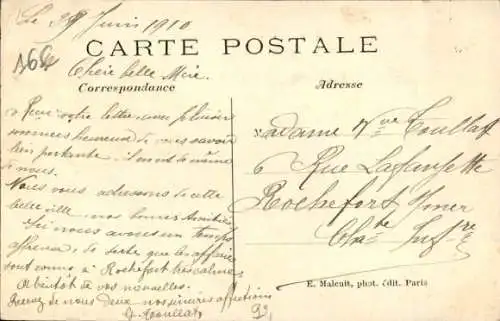 Le 29 Juin 1910
CARTE POSTALE
Chère belle Mère.
Correspondance
Adresse
Reçu votre lettre avec plaisir
sommes heureux de vous savoir
bien portante. Il en est de même
de nous.
Nous vous adressons de cette
belle ville, nos bonnes Amitiés
Ici nous avons un temps
affreux, de sorte que les affaires
sont comme à Rochefort très calmes
A bientôt de vos nouvelles.
Recevez de nous deux nos sincères affections
Madame Vve Toullat
6 Rue Lafayette
Rochefort s/mer
Chte Infre
E. Malcuit, phot. édit. Paris
92